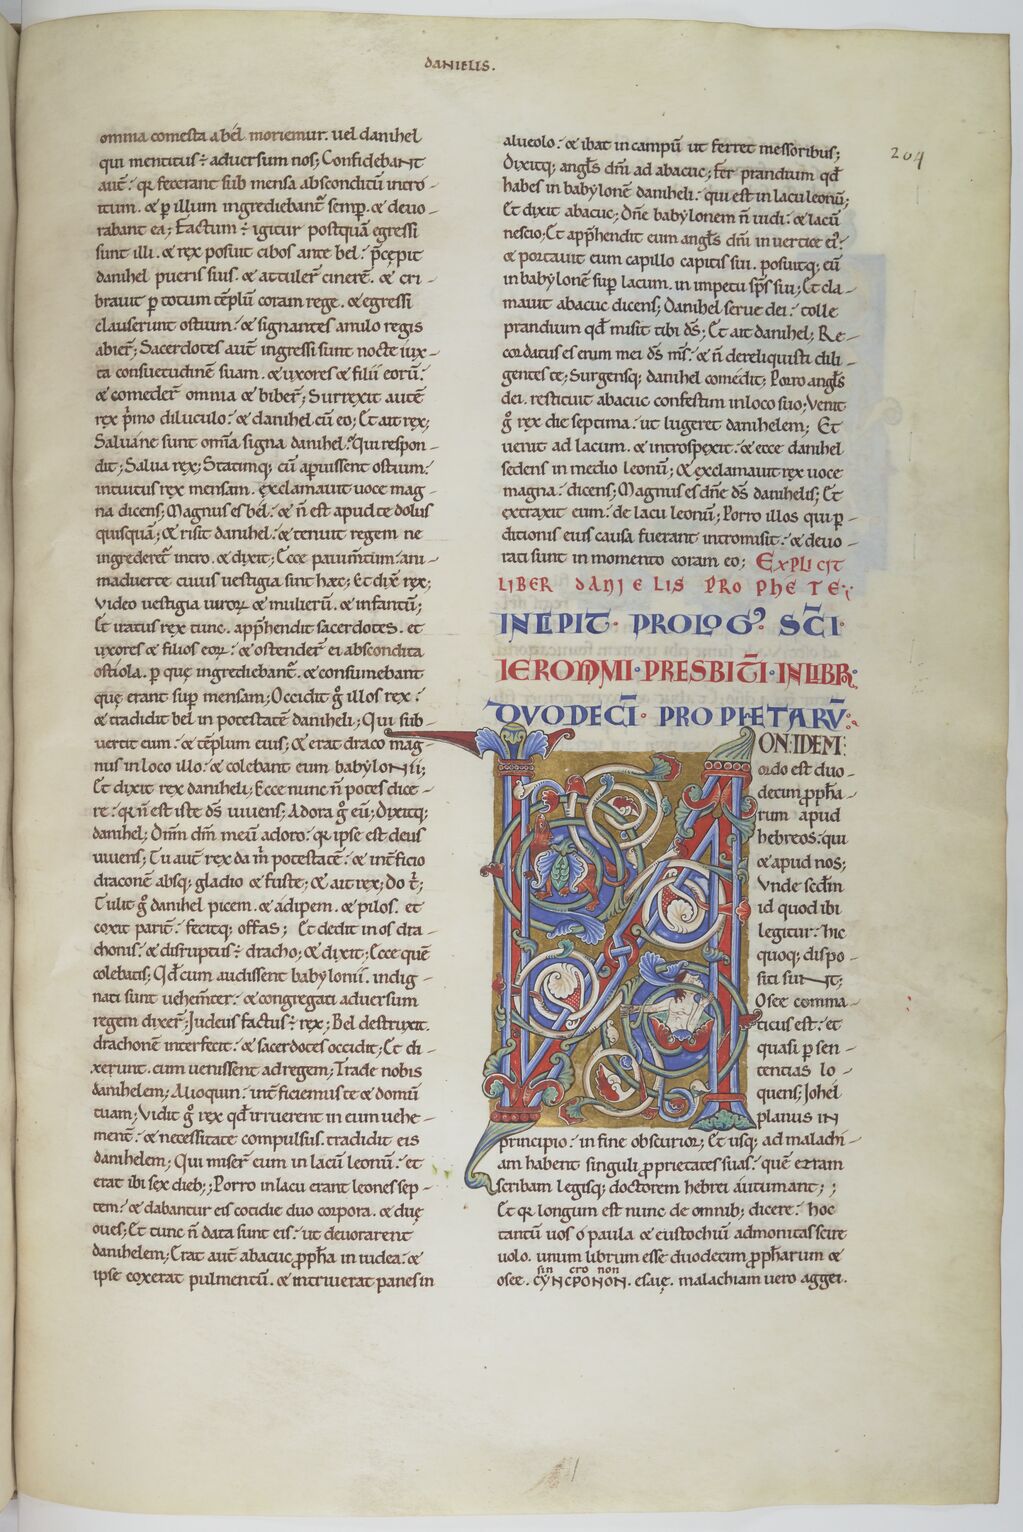 DANIELIS.
204
omnia comesta a bel̄. moriemur. uel danihel
qui mentitus ÷ aduersum nos; Confidebant
aut̄; qꝛ fecerant sub mensa absconditū intro-
itum. & ꝑ illum ingrediebant̄ semꝑ. & deuo-
rabant ea; Factum ÷ igitur postquā egressi
sunt illi. & rex posuit cibos ante bel. p̄cępit
danihel pueris suis. & attuler̄ cinerē. & cri-
brauit ꝑ totum tēplū coram rege. & egressi
clauserunt ostium. & signantes anulo regis
abier̄; Sacerdotes aut̄ ingressi sunt nocte iux-
ta consuetudinē suam. & uxores & filii eorū.
& comeder̄ omnia & biber̄; Surrexit autē
rex p̄mo diluculo. & danihel cū eo; Et ait rex;
Saluane sunt om̄a signa danihel? Qui respon-
dit; Salua rex; Statimq; cū aꝑuissent ostium.
intuitus rex mensam. exclamauit uoce mag-
na dicens; Magnus es bel. & n̄ est apud te dolus
quisquā; & risit danihel. & tenuit regem ne
ingrederet̄ intro. & dixit; Ecce pauim̄tum. ani-
maduerte cuius uestigia sint hæc; Et dix̄ rex;
Video uestigia uiroꝝ & mulierū. & infantiū;
Et iratus rex tunc. app̄hendit sacerdotes. et
uxores & filios eoꝝ. & ostender̄ ei abscondita
ostiola. ꝑ quę ingrediebant̄. & consumebant
quę erant suꝑ mensam; Occidit g̊ illos rex.
& tradidit bel in potestatē daniheli; Qui sub-
uertit eum. & tēplum eius; & erat draco mag-
nus in loco illo. & colebant eum babylonii;
Et dixit rex daniheli; Ecce nunc n̄ potes dice-
re. qꝛ n̄ est iste d̄s uiuens; Adora g̊ eū; Dixitq;
danihel; Dn̄m dm̄ meū adoro. qꝛ ipse est deus
uiuens; Tu aut̄ rex da m̄ potestatē. & int̄ficio
draconē absq; gladio & fuste; & ait rex; Do t̄;
Tulit g̊ danihel picem. & adipem. & pilos. et
coxit parit̄. fecitq; offas; Et dedit in os dra-
chonis. & disruptus ÷ dracho; & dixit; Ecce quē
colebatis; Qđ cum audissent babylonii. indig-
nati sunt uehem̄ter. & congregati aduersum
regem dixer̄; Iudeus factus ÷ rex; Bel destruxit.
drachonē interfecit. & sacerdotes occidit; Et di-
xerunt. cum uenissent ad regem; Trade nobis
danihelem; Alioquin. int̄ficiemus te & domū
tuam; Vidit g̊ rex qđ irruerent in eum uehe-
ment̄. & necessitate compulsus. tradidit eis
danihelem; Qui miser̄ eum in lacū leonū. et
erat ibi sex dieb;; Porro in lacu erant leones sep-
tem. & dabantur eis cotidie duo corpora. & duę
oues; Et tunc n̄ data sunt eis. ut deuorarent
danihelem; Erat aut̄ abacuc ꝓph̄a in iudea. &
ipse coxerat pulmentū. & intriuerat panes in
alueolo. & ibat in campū ut ferret messoribus;
Dixitq; angl̄s dn̄i ad abacuc; fer prandium qđ
habes in babylonē daniheli. qui est in lacu leonū;
Et dixit abacuc; Dn̄e babylonem n̄ uidi. & lacū
nescio; Et app̄hendit eum angl̄s dn̄i in uertice ei᷒.
& portauit eum capillo capitis sui. posuitq; eū
in babylonē suꝑ lacum. in impetu sp̄s sui; Et cla-
mauit abacuc dicens; Danihel serue dei. tolle
prandium qđ misit tibi d̄s; Et ait danihel; Re-
cordatus es enim mei d̄s m̄s. & n̄ dereliquisti dili-
gentes te; Surgensq; danihel comedit; Porro angl̄s
dei. restituit abacuc confestim in loco suo; Venit
g̊ rex die septima. ut lugeret danihelem; Et
uenit ad lacum. & introspexit. & ecce danihel
sedens in medio leonū; & exclamauit rex uoce
magna. dicens; Magnus es dn̄e d̄s danihelis; Et
extraxit eum. de lacu leonū; Porro illos qui ꝑ-
ditionis eius causa fuerant intromisit. & deuo-
rati sunt in momento coram eo; EXPLICIT
LIBER DANIELIS PROPHETE.
INCIPIT. PROLOG᷒. SC̄I.
IERONIMI. PRESBIT̄I. IN LIBR̄.
DVODECĪ. PROPHETARV̄.
NON. IDEM.
ordo est duo-
decim ꝓph̄a-
rum apud
hebreos. qui
& apud nos;
Vnde sc̄dm
id quod ibi
legitur. hic
quoq; dispo-
siti sunt;
Osee comma-
ticus est. et
quasi ꝑ sen-
tentias lo-
quens; Iohel
planus in
principio. in fine obscurior; Et usq; ad malachi-
am habent singuli ꝓprietates suas. quē ezram
scribam legisq; doctorem hebrei autumant;;
Et qꝛ longum est nunc de omnib; dicere. hoc
tantū uos ó paula & eustochiū admonitas scire
uolo. unum librum esse duodecim ꝓph̄arum &
sin cro non
osee. CYNCPONON. esaię. malachiam uero aggei.